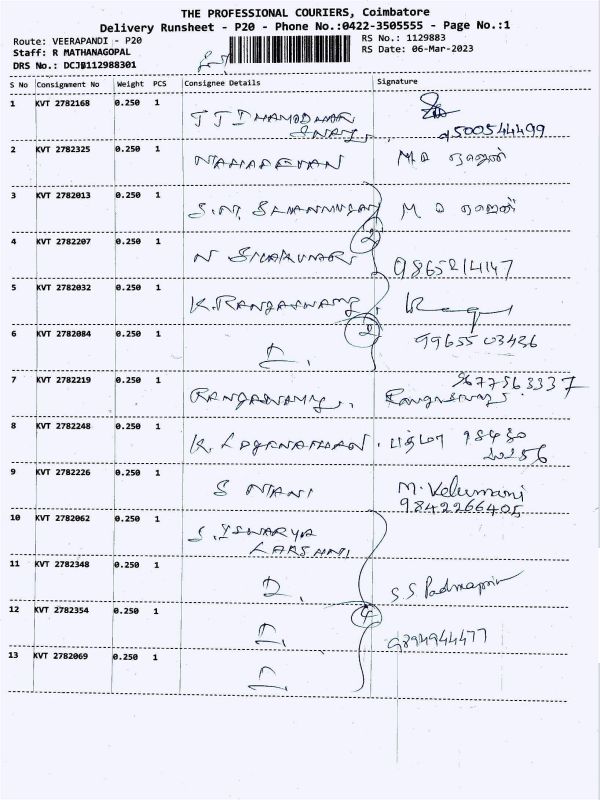 THE PROFESSIONAL COURIERS, Coimbatore
Delivery Runsheet - P20 - Phone No.:0422-3505555 - Page No.:1
Route: VEERAPANDI - P20
RS No.: 1129883
Staff: R MATHANAGOPAL
RS Date: 06-Mar-2023
DRS No.: DCJB112988301
S No Consignment No Weight PCS Consignee Details Signature
1 KVT 2782168 0.250 1
9500544499
2 KVT 2782325 0.250 1 MAHADEVAN M D
3 KVT 2782013 0.250 1 S.M. SHANMUGAM M D
2
4 KVT 2782207 0.250 1 N SIVAKUMAR 9865214147
5 KVT 2782032 0.250 1 K.RANGASWAMY
2
6 KVT 2782084 0.250 1 9965503436
7 KVT 2782219 0.250 1 RANGASWAMY. 9677563337
8 KVT 2782248 0.250 1 K. LOGANATHAN. 98430
20256
9 KVT 2782226 0.250 1 S MANI M. Velumani
9842266405
10 KVT 2782062 0.250 1 S. ISWARYA
LAKSHMI
11 KVT 2782348 0.250 1 S.S Padmapriy
4
12 KVT 2782354 0.250 1 9894944477
13 KVT 2782069 0.250 1